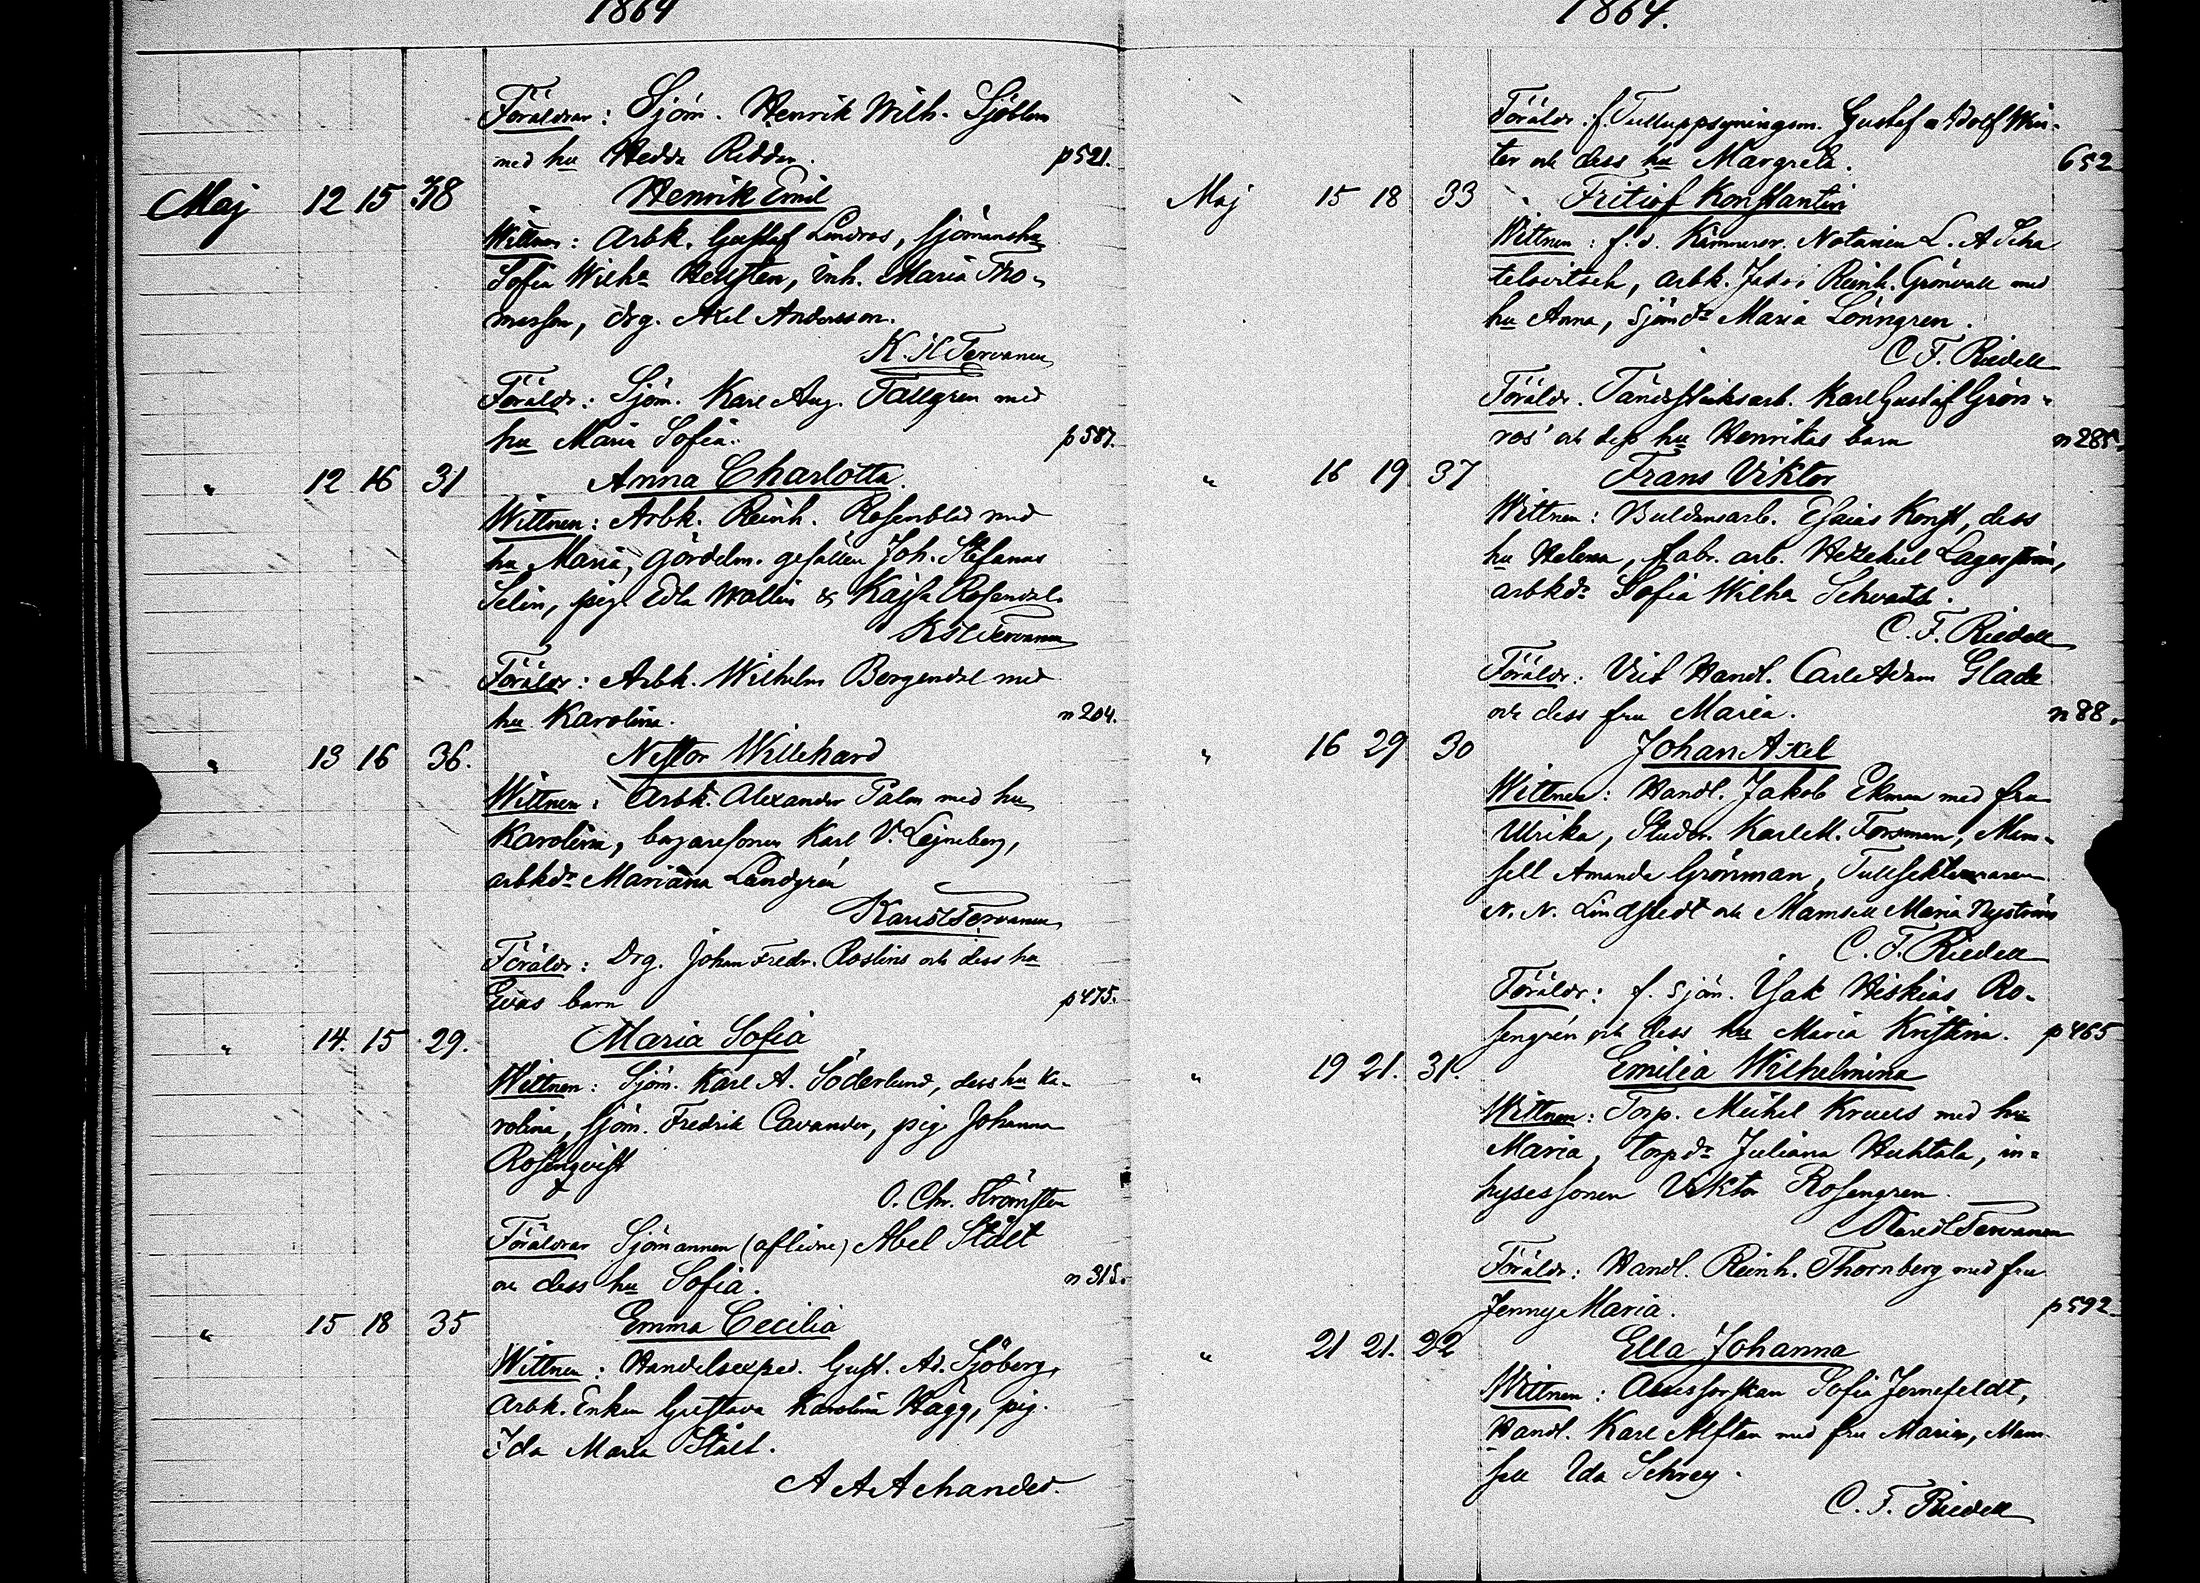 1864
Föräldrar: Sjöm. Henrik Wilh. Sjöblom
med hu Hedda Ridder. p 521.
Maj 12 15 38 Henrik Emil
Wittnen: Arbk. Gustaf Lindros, sjömanshu
Sofia Wilha Hellsten, inh. Maria Tho-
masson, drg. Axel Andersson.
K. H Tervanen
Föräldr: Sjöm. Karl Aug. Tallgren med
hu Maria Sofia. p 587.
" 12 16 31 Anna Charlotta.
Wittnen: Arbk. Reinh. Rosenblad med
hu Maria, gördelm. gesällen Joh. Stefanus
Selin, pig. Edla Wallin & Kajsa Rosendal.
K H Tervanen
Föräldr: Arbk. Wilhelm Bergendal med
hu Karolina. n 204.
" 13 16 36. Nestor Willehard
Wittnen: Arbk. Alexander Palm med hu
Karolina, bagaresonen Karl V. Lejneberg,
arbkdr Mariana Landgrén
Karl H Tervanen
Föräldr: Drg. Johan Fredr. Roslins och dess hu
Evas barn p 475.
" 14. 15 29. Maria Sofia
Wittnen: Sjöm. Karl A. Söderlund, dess hu Ka-
rolina, sjöm. Fredrik Cavander, pig. Johanna
Rosenqvist
O. Chr. Strömsten
Föräldrar Sjömannen (aflidne) Abel Stålt
och dess hu Sofia. n 315.
" 15 18 35 Emma Cecilia
Wittnen: Handelsexped. Gust. Ad. Sjöberg,
Arbk. Enkan Gustava Karolina Hägg, pig.
Ida Maria Stålt.
A A Achander.
1864.
Föräldr. f. Tulluppsyningsm. Gustaf Adolf Win-
ter och dess hu Margreta. 652
Maj 15 18 33 Fritiof Konstantin
Wittnen: f. d. Kämnersr. Notarien L. A Scha
telovitsch, arbk. Reinh. Grönvall med
hu Anna, sjömdr Maria Lönngren.
C. F. Riedell
Föräldr. Tändsticksarb. Karl Gustaf Grön-
roos' och dess hu Henrikas barn n 285.
" 16 19 37 Frans Viktor
Wittnen: Buldansarb. Esaias Konst, dess
hu Helena, fabr. arb. Hezekiel Lagerström,
arbkdr Sofia Wilha Schvartz.
C. F. Riedell
Föräldr: Vict. Handl. Carl Adam Glade
och dess fru Maria. n 88.
" 16 29 30 Johan Axel
Wittnen: Handl. Jakob Ekman med fru
Ulrika, Studer. Karl M. Forsman, Mam-
sell Amanda Grönman, Tullsekteraren
N. N. Lindstedt och Mamsell Maria Nyström
C. F. Riedell
Föräldr: f. sjöm. Isak Hiskias Ro-
sengrén och dess hu Maria Kristina. p 465
" 19 21. 31. Emilia Wilhelmina
Wittnen: Torp. Mickel Kruus med hu
Maria, torpdr Juliana Huhtala, in-
hysessonen Viktor Rosengren.
Karl H Tervanen
Föräldr: Handl. Reinh. Thornberg med fru
Jenny Maria. p 592
" 21 21. 22 Ella Johanna
Wittnen: Assessorskan Sofia Jernefeldt,
Handl. Karl Alftan med fru Maria, Mam-
sell Ida Schrey.
C. F. Riedell